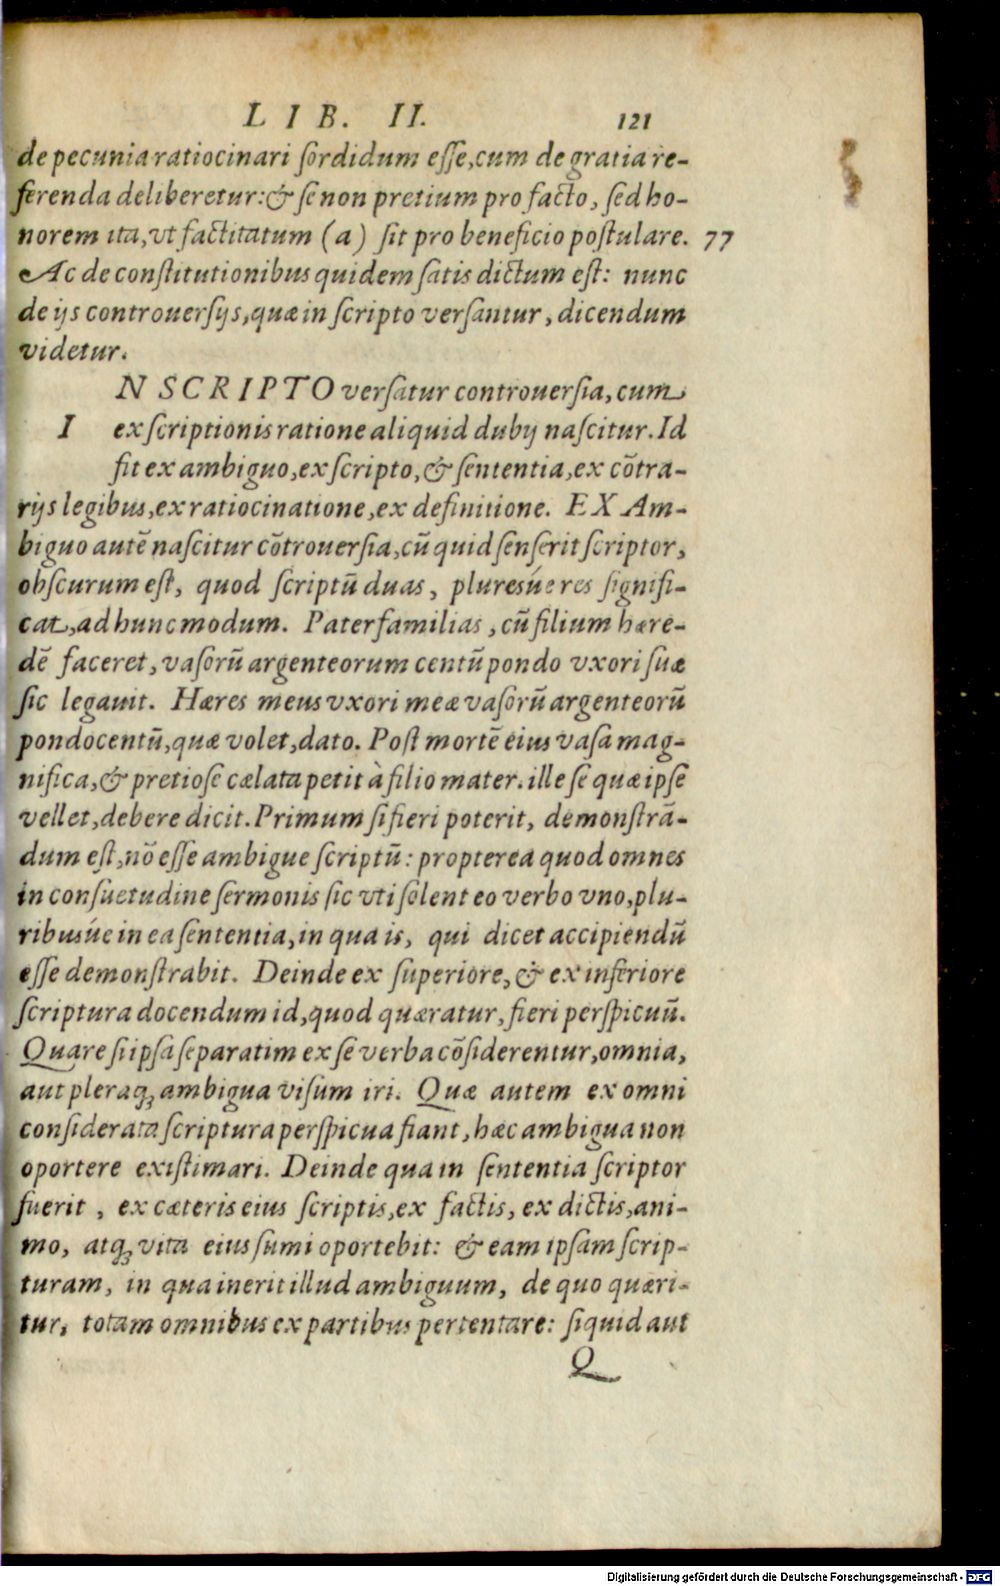 LIB. II. 121
de pecunia ratiocinari ſordidum eſſe, cum de gratia re-
ferenda deliberetur: & ſe non pretium pro facto, ſed ho-
norem ita, vt factitatum (a) ſit pro beneficio poſtulare. 77
Ac de conſtitutionibus quidem ſatis dictum eſt: nunc
de ijs controuerſijs, quæ in ſcripto verſantur, dicendum
videtur.
N SCRIPTO verſatur controuerſia, cum
I ex ſcriptionis ratione aliquid dubij naſcitur. Id
fit ex ambiguo, ex ſcripto, & ſententia, ex cõtra-
rijs legibus, ex ratiocinatione, ex definitione. EX Am-
biguo autẽ naſcitur cõtrouerſia, cũ quid ſenſerit ſcriptor,
obſcurum eſt, quod ſcriptũ duas, plureśue res ſignifi-
cat, ad hunc modum. Paterfamilias, cũ filium hære-
dẽ faceret, vaſorũ argenteorum centũ pondo vxori ſuæ
ſic legauit. Hæres meus vxori meæ vaſorũ argenteorũ
pondo centũ, quæ volet, dato. Poſt mortẽ eius vaſa mag-
nifica, & pretioſe cælata petit à filio mater. ille ſe quæ ipſe
vellet, debere dicit. Primum ſi fieri poterit, demonſtrã-
dum eſt, nõ eſſe ambigue ſcriptũ: propterea quod omnes
in conſuetudine ſermonis ſic vti ſolent eo verbo vno, plu-
ribuśue in ea ſententia, in qua is, qui dicet accipiendũ
eſſe demonſtrabit. Deinde ex ſuperiore, & ex inferiore
ſcriptura docendum id, quod quæratur, fieri perſpicuũ.
Quare ſi ipſa ſeparatim ex ſe verba cõſiderentur, omnia,
aut pleraq; ambigua viſum iri. Quæ autem ex omni
conſiderata ſcriptura perſpicua fiant, hæc ambigua non
oportere exiſtimari. Deinde qua in ſententia ſcriptor
fuerit, ex cæteris eius ſcriptis, ex factis, ex dictis, ani-
mo, atq; vita eius ſumi oportebit: & eam ipſam ſcrip-
turam, in qua inerit illud ambiguum, de quo quæri-
tur, totam omnibus ex partibus pertentare: ſiquid aut
Q
Digitalisierung gefördert durch die Deutsche Forschungsgemeinschaft - DFG